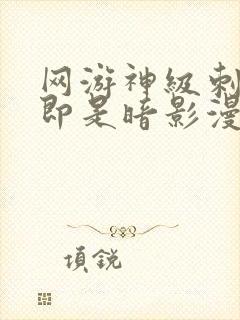 网游神级刺
即是暗影漫
項銳